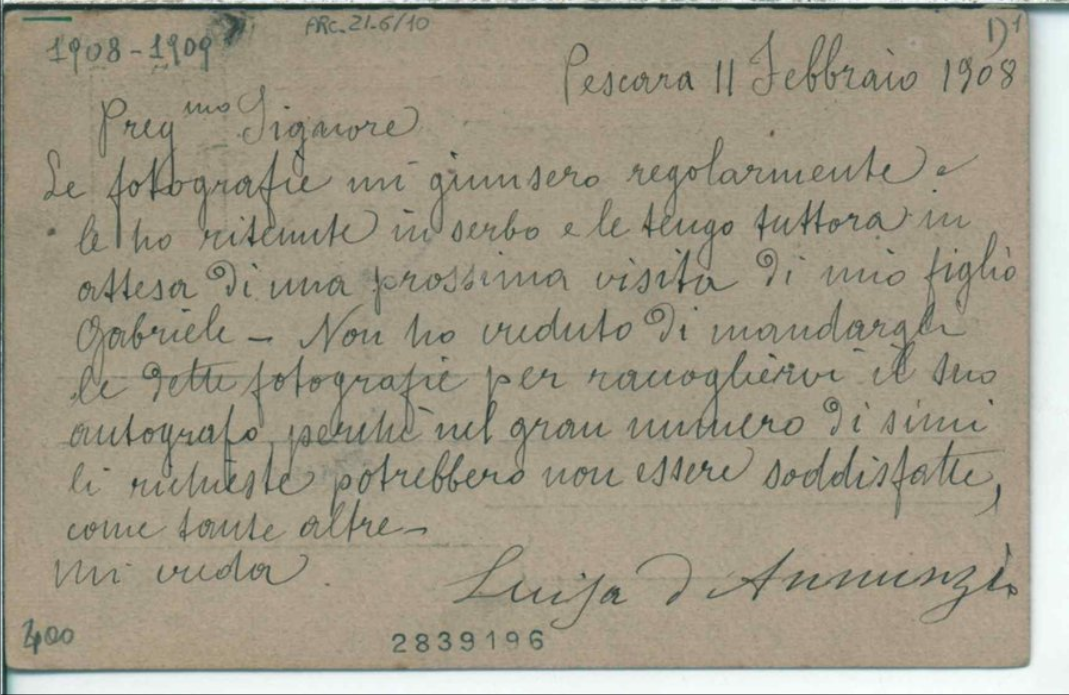 ARC.21.6/10
1908-1909
D1
Pescara 11 Febbraio 1908
Preg.mo Signore
Le fotografie mi giunsero regolarmente e
le ho ritenute in serbo e le tengo tuttora in
attesa di una prossima visita di mio figlio
Gabriele – Non ho creduto di mandargli
le dette fotografie per raccogliervi il suo
autografo, perchè nel gran numero di simi
li richieste potrebbero non essere soddisfatte,
come tante altre –
Mi creda
Luisa d'Annunzio
400
2839196